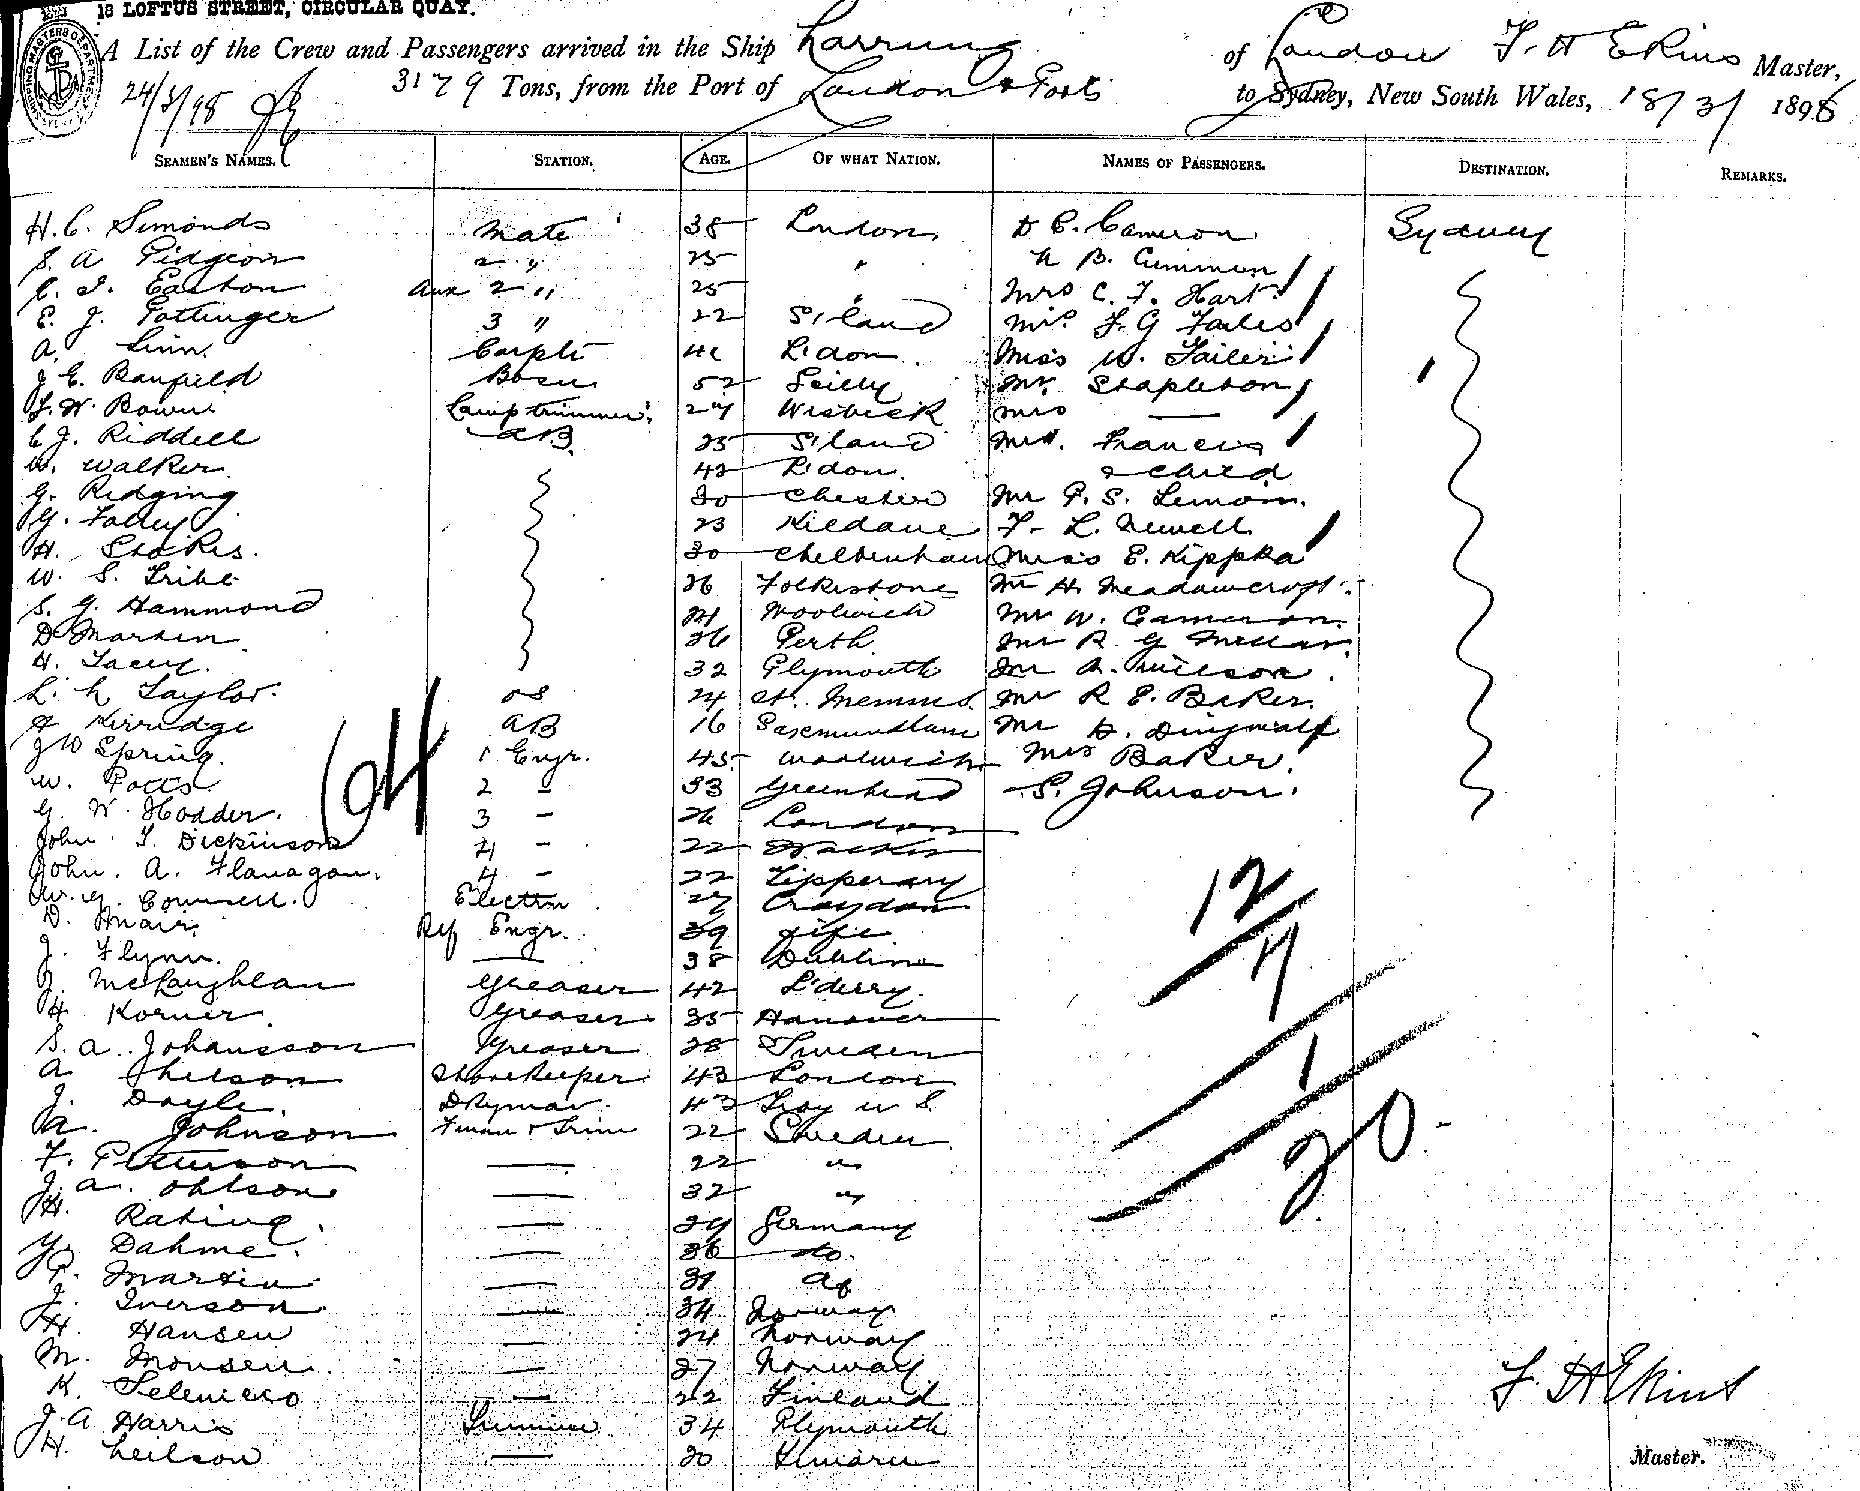 18 LOFTUS STREET, CIRCULAR QUAY.
A List of the Crew and Passengers arrived in the Ship of London F. H Ekins Master,
24/3/98 3179 Tons, from the Port of London & Ports to Sydney, New South Wales, 18/3/ 1898
SEAMEN'S NAMES. STATION. AGE. OF WHAT NATION. NAMES OF PASSENGERS. DESTINATION. REMARKS.
H. C. Simonds Mate 38 London D C. Cameron Sydney
S. A Pidgeon 2 " 25 "
E. J. Easton Aux 2 " 25 " Mrs C. F. Hart
E. J. Pottinger 3 " 22 S'land
A. Linn Carptr L'don Miss W.
J E. Banfield Bosn 52 Scilly Mr. Stapleton
Lamptrimmer 27 Wisbeck Mrs —
C J. Riddell AB 25 S'land Mrs. Francis
W. Walker 42 L'don & child
G. Ridging 30 Chester Mr P. S.
G. Foley 23 Kildare F. L. Newell
H. Stokes. 30 Cheltenham Miss E. Kippka
W. S. Tribe 26 Folkestone Mr H. Meadowcroft
S. G. Hammond 21 Woolwich Mr W. Cameron
D Martin 26 Perth Mr R G Millar
H. Lacey. 32 Plymouth Mr A. Wilson
L. N Taylor. OS 24 Mr R E. Baker
A Kerridge AB 16 Mr D. Dingwall
J W Spring. 1 Engr. 45 Woolwich Mrs Baker
W. Potts 2 - 33 Greenhead S. Johnson.
G. W. Hodder. 3 - 26 London
John T. Dickinson 4 - 22
John. A. Flanagan. 4 - 22 Tipperary
Counsell. Electrn 27 Croydon
D. Mair Ref Engr. 39 Fife
J. Flynn. — 38 Dublin
McLaughlan Greaser 42 L'derry.
H Korner. Greaser 35 Hanover
S. A. Johansson Greaser 28 Sweden
A Nelson Storekeeper 43 London
J. Doyle. Dkyman 43 Troy U S.
A. Johnson Fman & Trim 22 Sweden
F. Petterson — 22 "
J. A. Ohlson — 32 "
H. — 29 Germany
Dahme. — 36 do.
P. Martin — 31
J. Iverson — 34 Norway
H. Hansen — 24 Norway
M. Monsen — 27 Norway
K. — 22 Finland
J. A Harris Trimmer 34 Plymouth
H. Neilson — 20
64
12
7
1
20
F. H Ekins
Master.